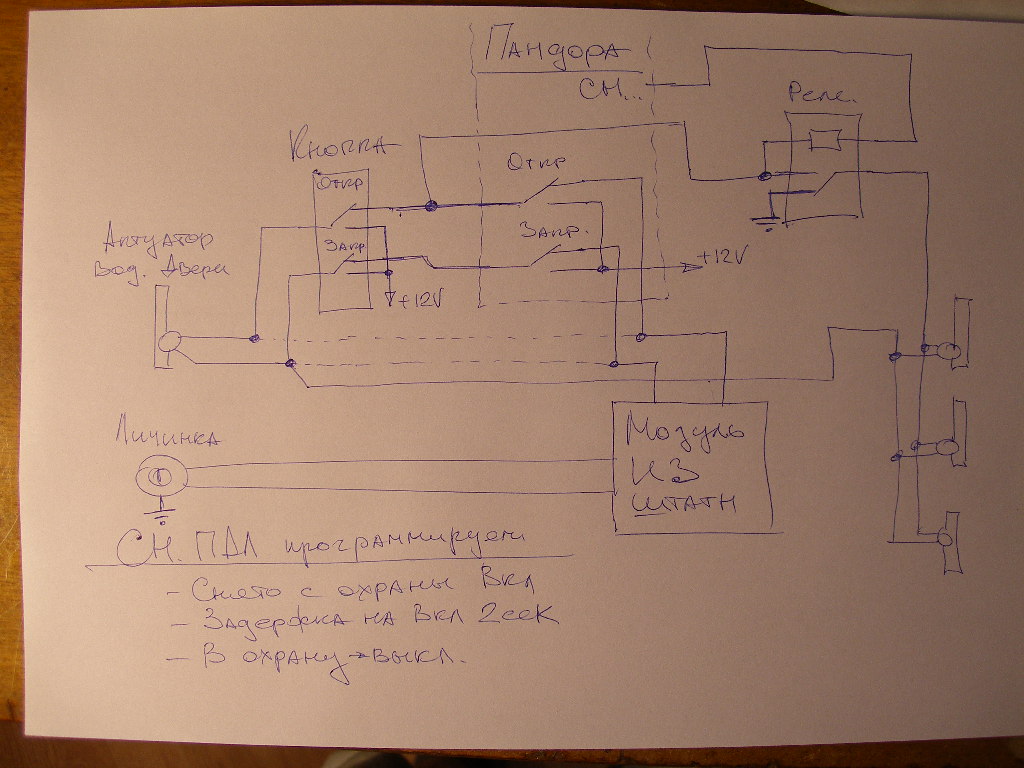 Пандора
СН...
Реле.
Кнопка
Откр
Откр
Закр
Закр.
+12V
+12V
Актуатор
Вод. Двери
Личинка
Модуль
ИЗ
штатн
СН. ПДЛ программируем
- Снято с охраны Вкл
- Задержка на Вкл 2сек
- В охрану→выкл.